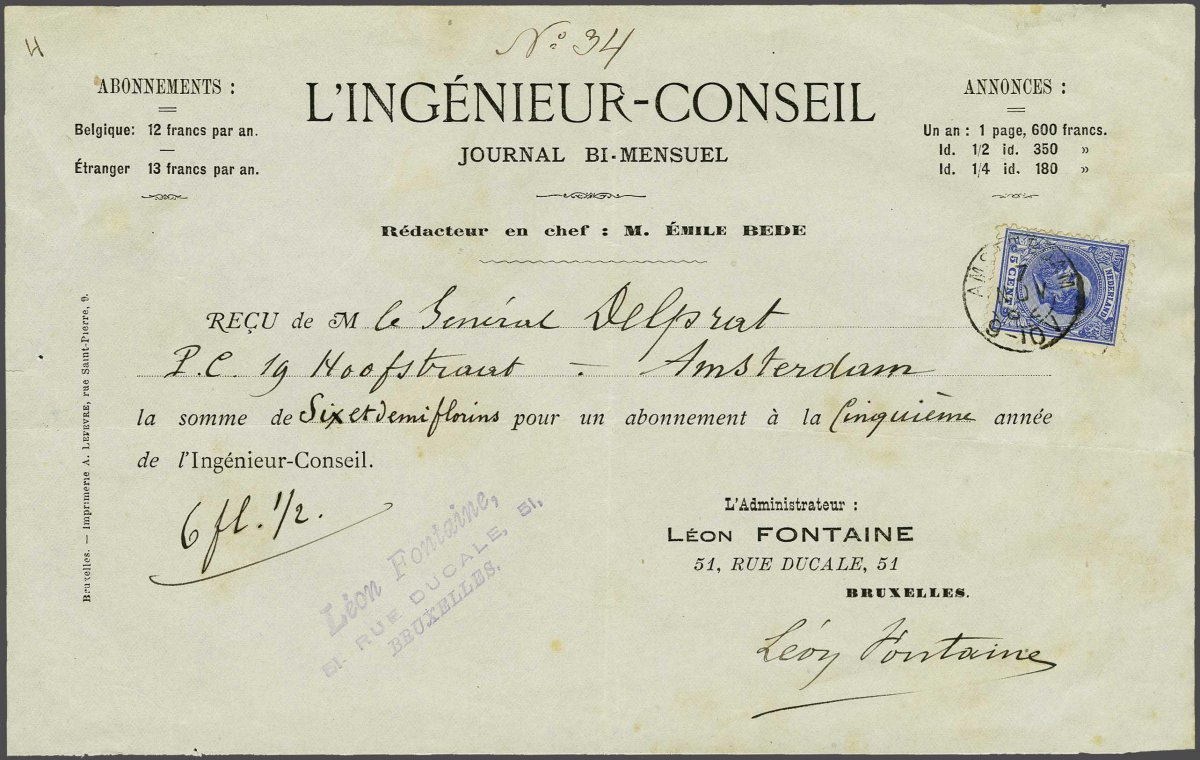 4
Nº 34
ABONNEMENTS :
Belgique: 12 francs par an.
Étranger 13 francs par an.
L'INGÉNIEUR-CONSEIL
JOURNAL BI-MENSUEL
Rédacteur en chef : M. ÉMILE BEDE
ANNONCES :
Un an : 1 page, 600 francs.
Id. 1/2 id. 350 »
Id. 1/4 id. 180 »
NEDERLAND
5 CENT
AMSTERDAM
9-10
REÇU de M le Général Delprat
P.C. 19 Hoofstraat - Amsterdam
la somme de Six et demi florins pour un abonnement à la Cinquième année
de l'Ingénieur-Conseil.
6 fl. 1/2.
Léon Fontaine,
51, RUE DUCALE, 51,
BRUXELLES.
L'Administrateur :
LÉON FONTAINE
51, RUE DUCALE, 51
BRUXELLES.
Léon Fontaine
Bruxelles. — Imprimerie A. LEFEVRE, rue Saint-Pierre, 9.